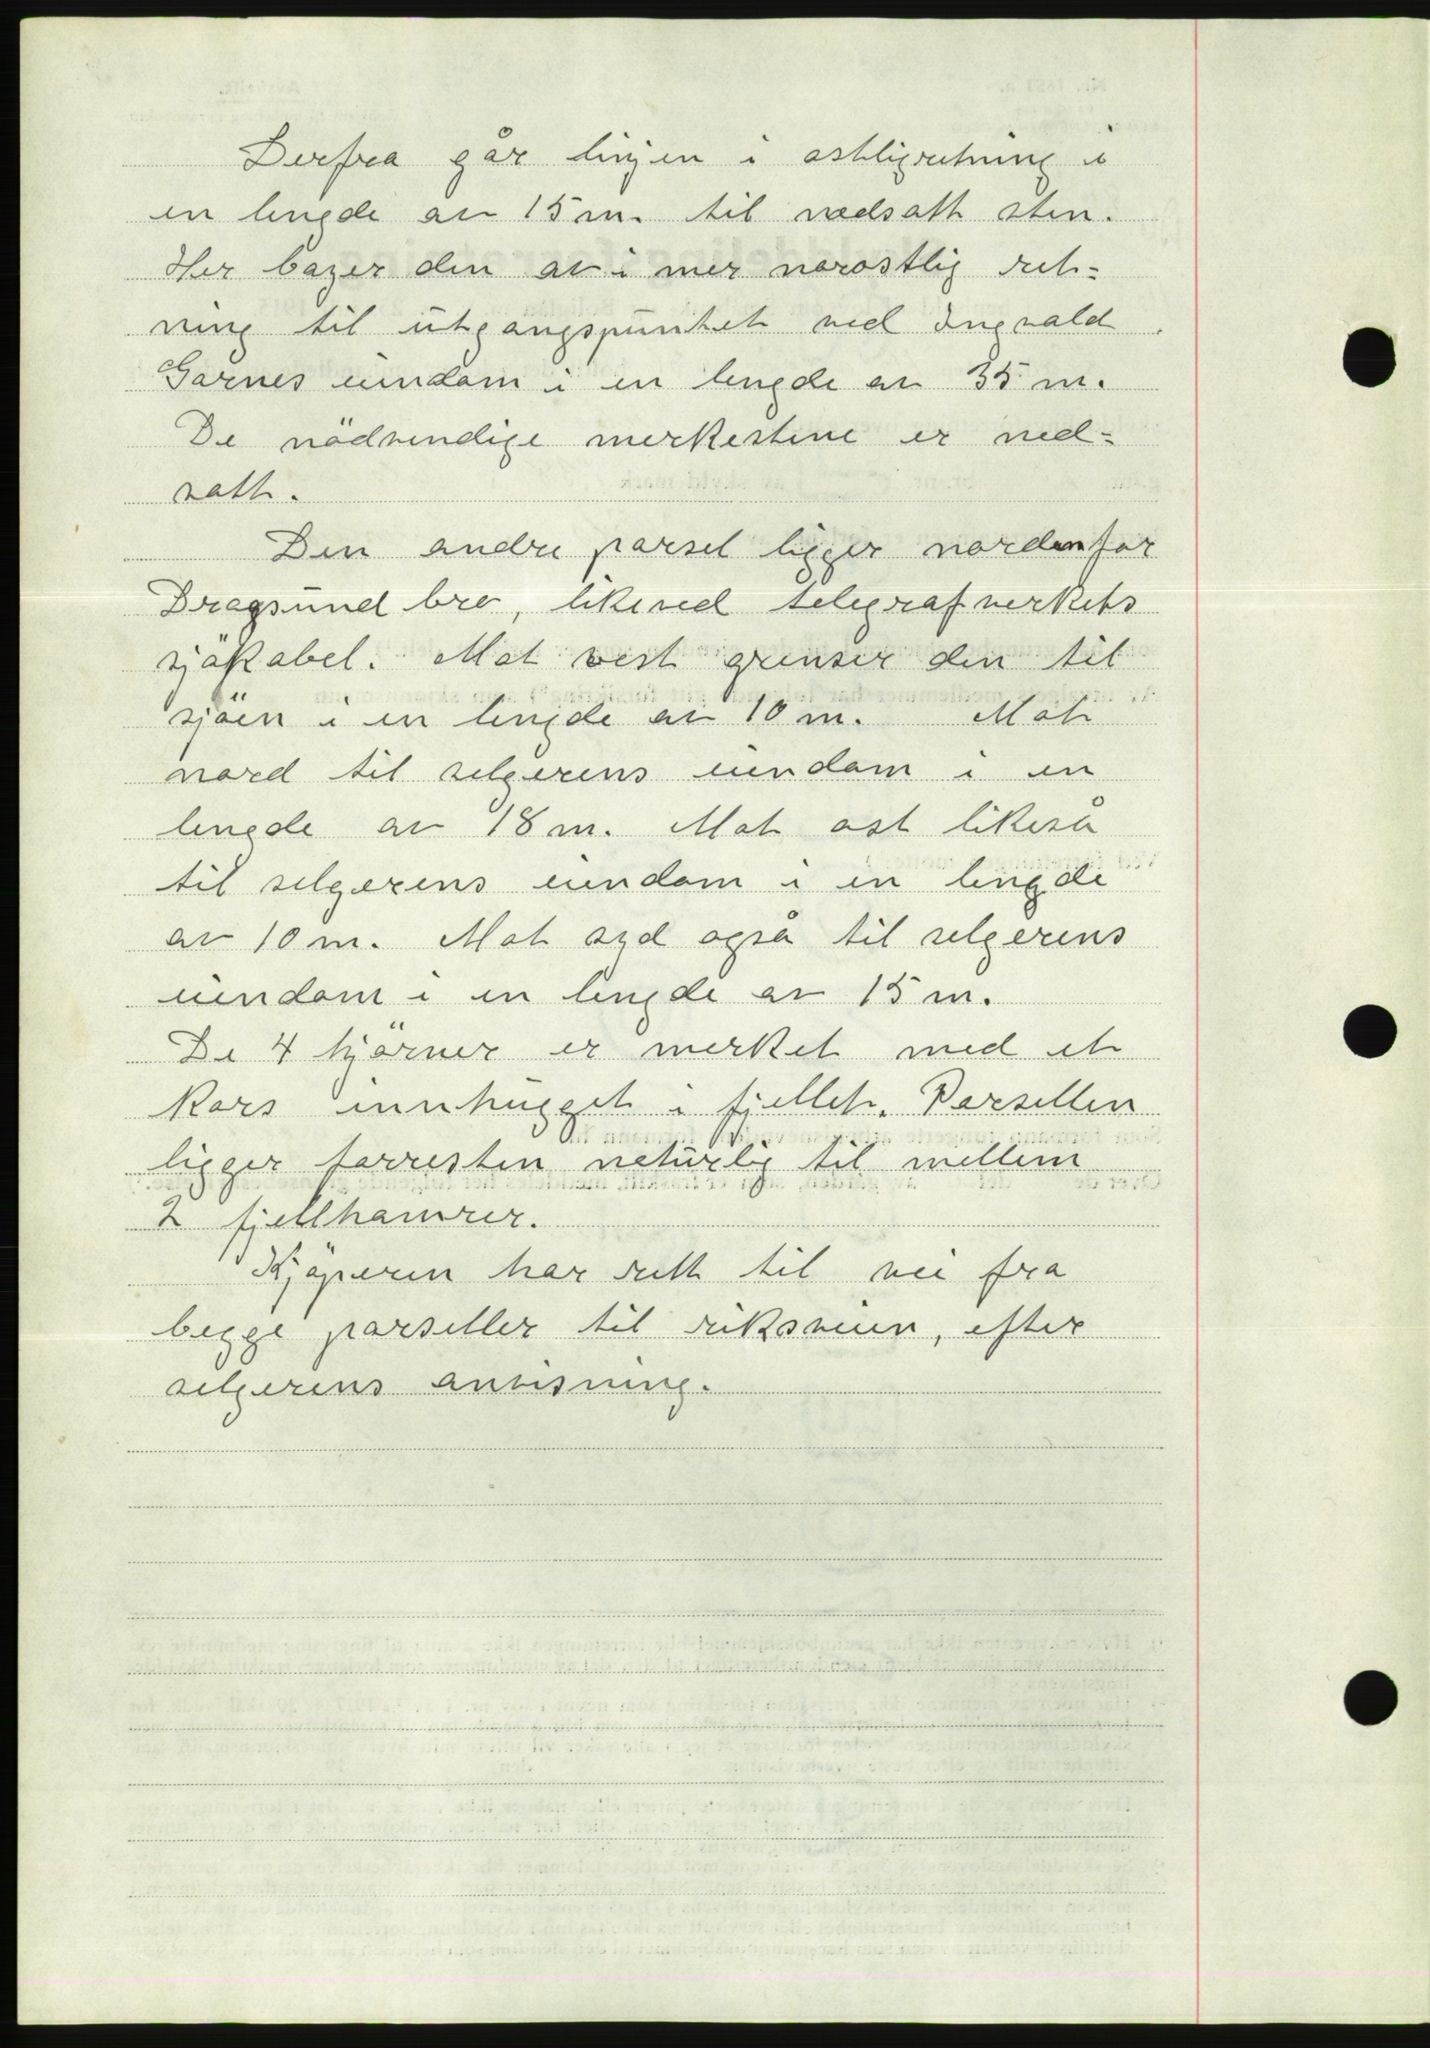 Derfra går linjen i østligretning i
en lengde av 15 m. til nedsatt sten.
Her bøyer den av i mer norøstlig ret=
ning til utgangspunktet ved Ingvald
Garnes eiendom i en lengde av 35 m.
De nödvendige merkestene er ned=
satt.
Den andre parsel ligger nordenfor
Dragsund bro, likeved telegrafverkets
sjökabel. Mot vest grenser den til
sjöen i en lengde av 10 m. Mot
nord til selgerens eiendom i en
lengde av 18 m. Mot øst likeså
til selgerens eiendom i en lengde
av 10 m. Mot syd også til selgerens
eiendom i en lengde av 15 m.
De 4 hjörner er merket med et
kors innhugget i fjellet. Parsellen
ligger forresten naturlig til mellem
2 fjellhamrer.
Kjöperen har rett til vei fra
begge parseller til riksveien, efter
selgerens anvisning.